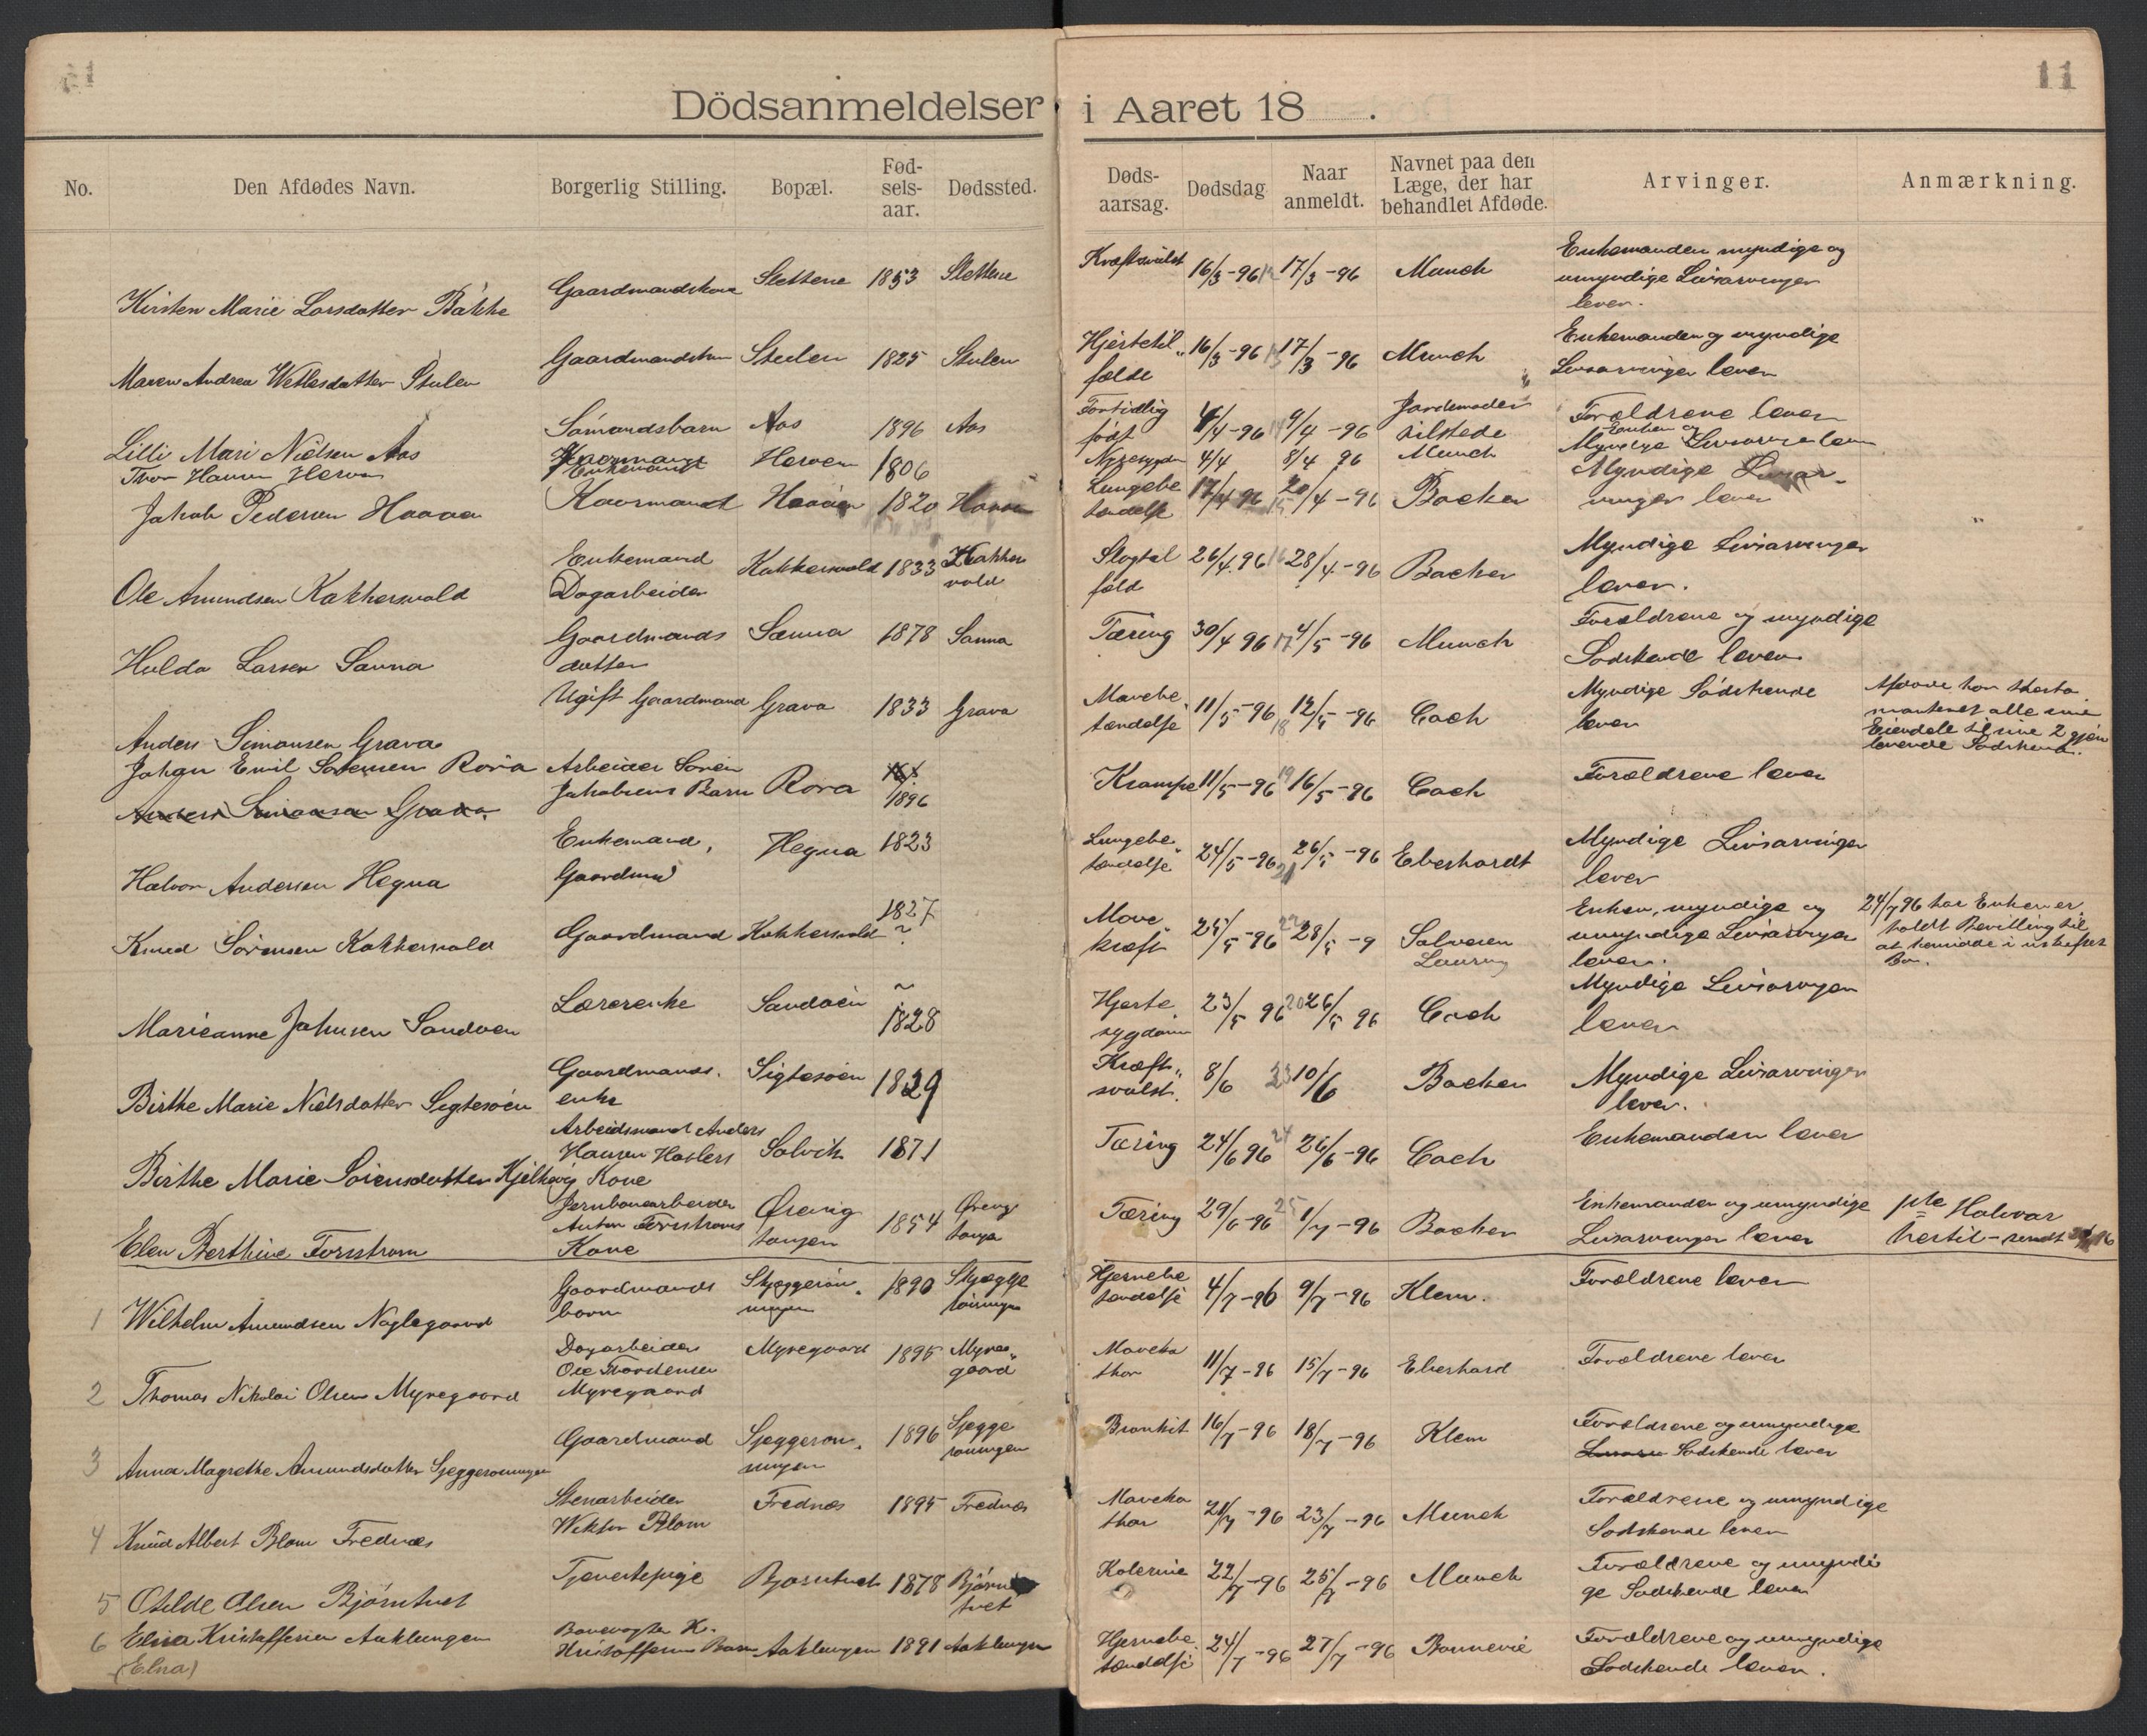 11
Dödsanmeldelser i Aaret 18 .
No. Den Afdødes Navn. Borgerlig Stilling. Bopæl. Fød-sels-aar. Dødssted. Døds-aarsag. Dødsdag Naar anmeldt. Navnet paa den Læge, der har behandlet Afdøde. Arvinger. Anmærkning.
Kirsten Marie Larsdatter Bakke Gaardmandskone Slettene 1853 Slettene Kræftsvulst 16/3-96 12 17/3-96 Munch Enkemanden myndige og umyndige Livsarvinger lever.
Maren Andrea Wetlesdatter Stulen Gaardmandskone Stulen 1825 Stulen Hjertetilfælde 16/3-96 13 17/3-96 Munch Enkemanden og myndige Livsarvinger lever
Lilli Mari Nielsen Aas Sømandsbarn Aas 1896 Aas Fortidlig født 4/4-96 14 9/4-96 Jordemoder tilstede Forældrene lever
Thor Hansen Herven Herven 1806 4/4 8/4 96 Munch Enken og Myndige Livsarvinge lever
Jakob Pedersen Haaven Kaarmand Haaven 1820 Haaven Lungebetændelse 17/4 96 15 20/4-96 Backer Myndige Livsarvinger lever
Ole Amundsen Kokkersvold Enkemand Dagarbeider Kokkersvold 1833 Kokkersvold Slagtilfæld 26/4.96 16 28/4-96 Backer Myndige Livsarvinger lever.
Hulda Larsen Sanna Gaardmandsdatter Sanna 1878 Sanna Tæring 30/4 96 17 4/5-96 Munch Forældrene og myndige Sødskende lever
Anders Simonsen Grava Ugift Gaardmand Grava 1833 Grava Mavebetændelse 11/5-96 18 12/5-96 Coch Myndige Sødskende lever Afdøde har testamenteret alle sine Eiendele til sine 2 gjenlevende Sødskende.
Johan Emil Sørensen Rora Arbeider Søren Jakobsens Barn Rora 1896 Krampe 11/5-96 19 16/5-96 Coch Forældrene lever
Anders Simonsen Grava
Halvor Andersen Hegna Enkemand, Gaardmand Hegna 1823 Lungebetændelse 24/5-96 21 26/5-96 Eberhardt Myndige Livsarvinger lever
Knud Sørensen Kokkersvold Gaardmand Kokkersvold 1827 ? Mavekræft 25/5-96 22 28/5-9 Solveien Enken, myndige og umyndige Livsarvinger lever. 24/7 96 har Enken erholdt Bevilling til at hensidde i uskiftet Bo.
Marieanne Johnsen Sandøen Lærerenke Sandøen 1828 Hjertesygdom 23/5 96 20 26/5 96 Coch Myndige Livsarvinger lever
Birthe Marie Nielsdatter Sigtesøen Gaardmandsenke Sigtesøen 1829 Kræftsvulst. 8/6 23 10/6 Backer Myndige Livsarvinger lever.
Birthe Marie Sørensdatter Kjelkevig Arbeidsmand Anders Hansen Hoslers Kone Solvik 1871 Tæring 24/6 96 24 26/6-96 Coch Enkemanden lever
Elen Berthine Forsstrøm Jernbanearbeider Anton Forsstrøms Kone Ørevigtangen 1854 Ørevigtangen Tæring 29/6-96 25 1/7-96 Backer Enkemanden og umyndige Livsarvinger lever pte Halvar
1 Wilhelm Amundsen Naglegaard Gaardmandsbarn Skjeggerøningen 1890 Hjernebetændelse 4/7-96 9/7-96 Klem. Forældrene lever
2 Thomas Nikolai Olsen Myregaard Dagarbeider Ole Thordensen Myregaard Myregaard 1895 Myregaard Mavekathar 11/7-96 15/7-96 Eberhard Forældrene lever
3 Anna Magrethe Amundsdatter Sjeggerøningen Gaardmand Sjeggerøningen 1896 Sjeggerøningen Bronkit 16/7-96 18/7-96 Klem Forældrene og umyndige Sødskende lever
4 Knud Albert Blom Frednæs Stenarbeider Wiktor Blom Frednæs 1895 Frednæs Mavekathar 21/7-96 23/7-96 Munch Forældrene og umyndige Sødskende lever
5 Otilde Olsen Bjørntvet Tjenestepige Bjørntvet 1878 Bjørntvet Kolerine 22/7-96 25/7-96 Munch Forældrene og umyndige Sødskende lever
6 Elisa Kristoffersen Aaklungen Banevogter K. Kristoffersens Barn Aaklungen 1891 Aaklungen Hjernebetændelse 24/7-96 27/7-96 Bonnevie Forældrene og umyndige Sødskende lever.
(Elna)